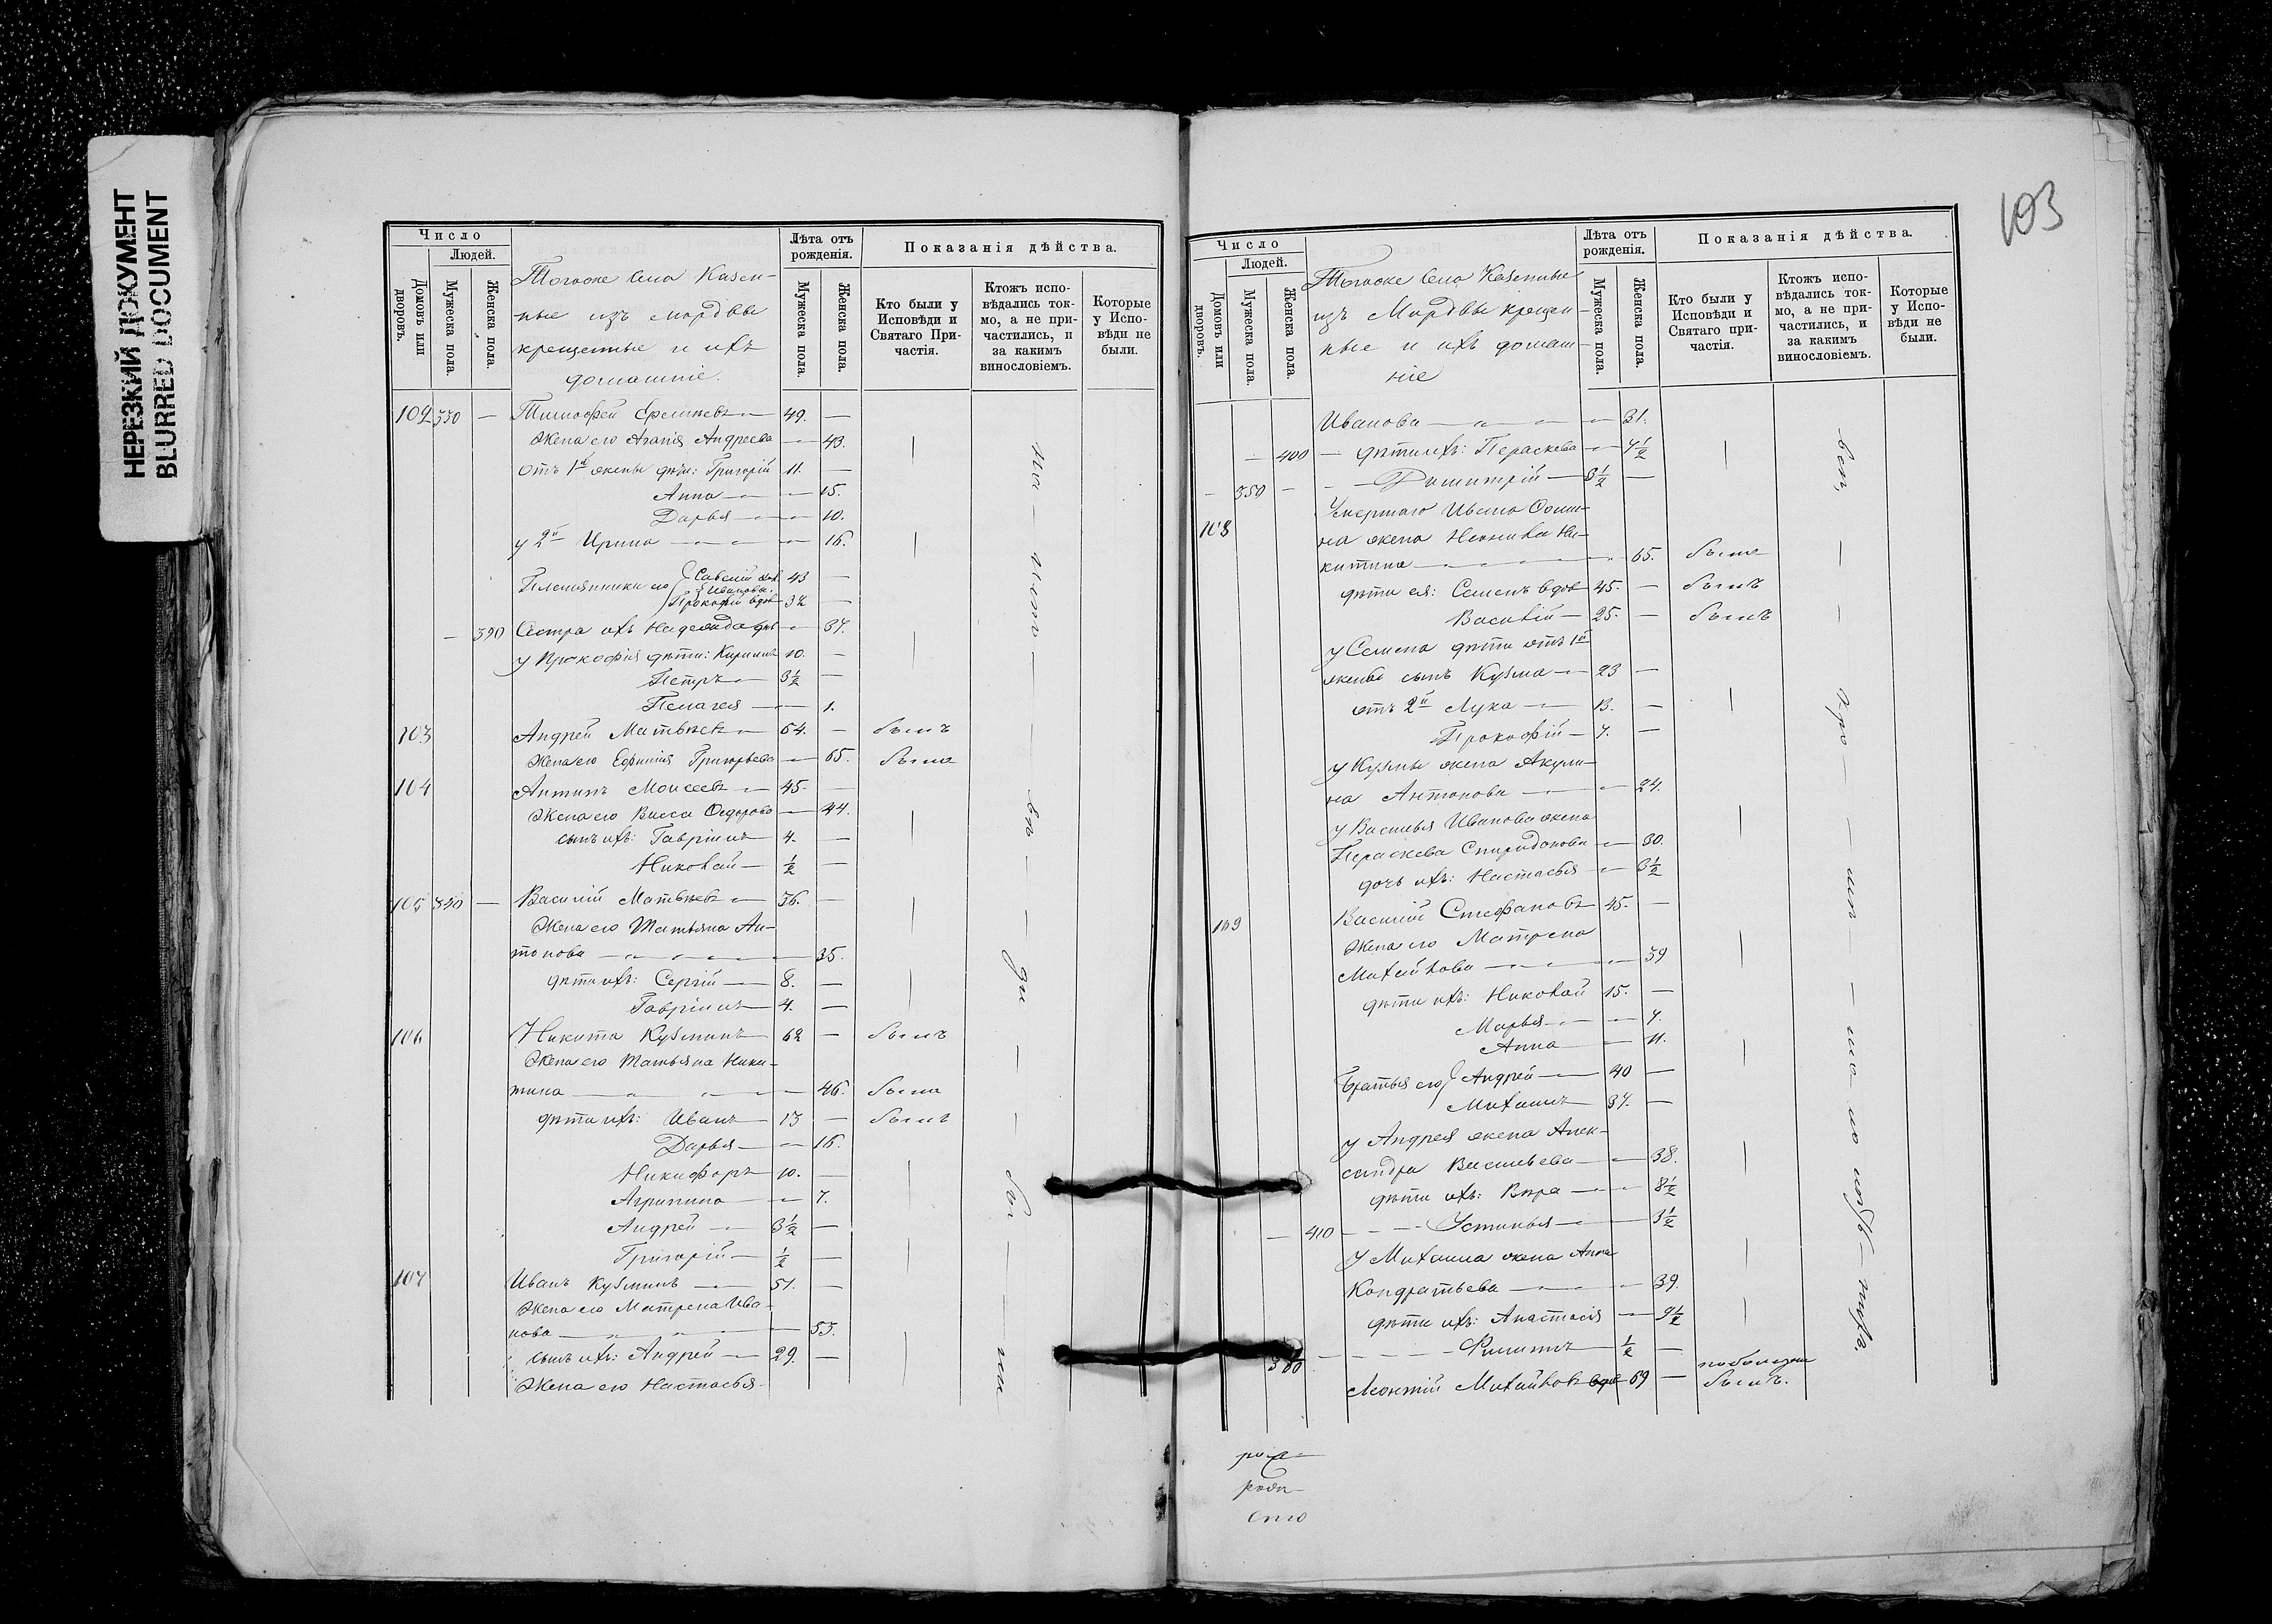 НЕРЕЗКИЙ ДОКУМЕНТ
BLURRED DOCUMENT
103
Число
Людей.
Домовъ или дворовъ.
Мужеска пола.
Женска пола.
Лѣта отъ рожденія.
Мужеска пола.
Женска пола.
Показанія дѣйства.
Кто были у Исповѣди и Святаго Причастія.
Ктожъ исповѣдались токмо, а не причастились, и за какимъ винословіемъ.
Которые у Исповѣди не были.
Тогоже села Казен-
ные изъ мордвы
крещенные и ихъ
домашніе.
102 330 — Тимофей Еремѣевъ 49. —
Жена его Агапія Андреева — 43.
Отъ 1й жены дѣти: Григорій 11. —
Анна — 15.
Дарья — 10.
у 2й Ирина — 16.
Племянники его Савелій 43 —
Ивановы
Прокофій вдов 32 —
— 390 Сестра ихъ Надежда — 37.
у Прокофія дѣти: Кириллъ 10. —
Петръ 3½ —
Пелагея — 1.
103 Андрей Матвѣевъ 64. — былъ
Жена его Ефимія Григорьева — 65. была
104 Антипъ Моисеевъ 45. —
Жена его Васса Ѳедорова — 44.
сынъ ихъ: Гавріилъ 4. —
Николай ½ —
105 340 — Василій Матвѣевъ 36. —
Жена его Татьяна Ан-
тонова — 35.
дѣти ихъ: Сергій 8. —
Гавріилъ 4. —
106 Никита Кузминъ 62 — былъ
Жена его Татьяна Ники-
тина — 46. была
дѣти ихъ: Иванъ 13 — былъ
Дарья — 16.
Никифоръ 10. —
Агрипина — 7.
Андрей 3½ —
Григорій ½ —
107 Иванъ Кузминъ 51. —
Жена его Матрена Ива-
нова — 53.
сынъ ихъ: Андрей 29. —
Жена его Настасья
Число
Людей.
Домовъ или дворовъ.
Мужеска пола.
Женска пола.
Лѣта отъ рожденія.
Мужеска пола.
Женска пола.
Показанія дѣйства.
Кто были у Исповѣди и Святаго причастія.
Ктожъ исповѣдались токмо, а не причастились, и за какимъ винословіемъ.
Которые у Исповѣди не были.
Тогоже села Казенные
изъ Мордвы крещен-
ные и ихъ домаш-
ніе
Иванова — 31.
— 400 — дѣти ихъ: Параскева — 7½
— 350 — Димитрій 3½ —
108 Умершаго Ивана
на жена Ни-
китина — 65. была
дѣти ея: Семенъ вдов 45. — былъ
Василій 25. — былъ
у Семена дѣти отъ 1й
жены сынъ Кузма 23 —
отъ 2й Лука 13. —
Прокофій 7. —
у Кузмы жена Акули-
на Антонова — 24.
у Василья Иванова жена
Параскева Спиридонова — 30.
дочь ихъ: Настасья — 3½
109 Василій Стефановъ 45. —
Жена его Матрена
Михайлова — 39
дѣти ихъ: Николай 15. —
Марья — 7.
Анна — 11.
Братья его Андрей 40 —
Михаилъ 37. —
у Андрея жена Алек-
сандра Васильева — 38.
дѣти ихъ: Вѣра — 8½
— 410 — Устинья — 3½
у Михаила жена Анна
Кондратьева — 39.
дѣти ихъ: Анастасія — 9½
360 — Филиппъ ½ —
Леонтій Михайловъ вдов 69 —
былъ.